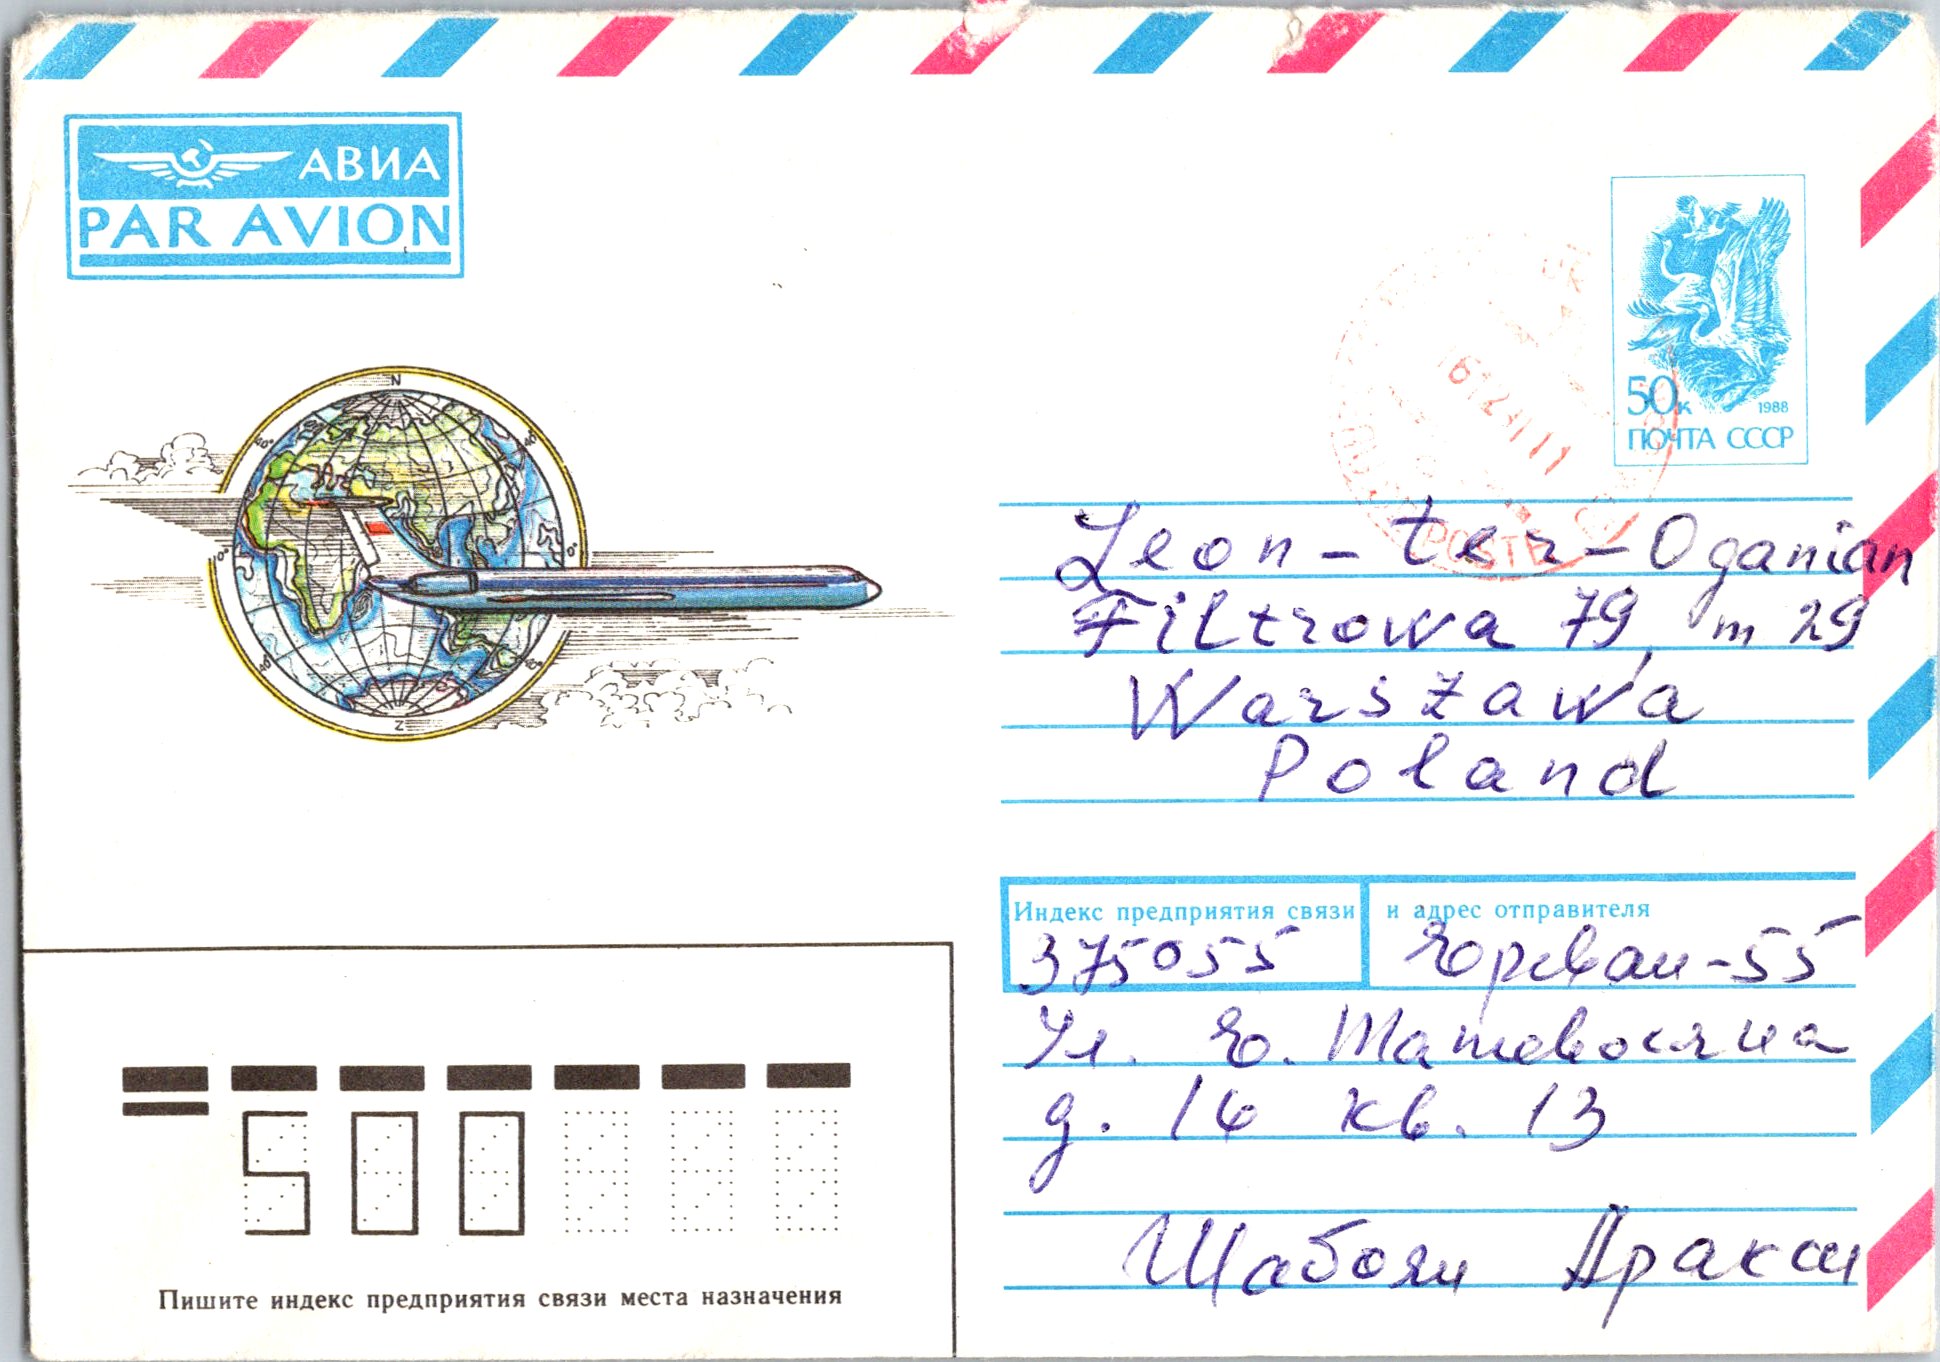 АВИА
PAR AVION
50к 1988
ПОЧТА СССР
POSTE
N
Z
Leon-ter-Oganian
Filtrowa 79, m 29
Warszawa
Poland
Индекс предприятия связи и адрес отправителя
375055 Ереван-55
Ул. Е. Татевосяна
д. 16 кв. 13
Шабоян Аракси
500
Пишите индекс предприятия связи места назначения